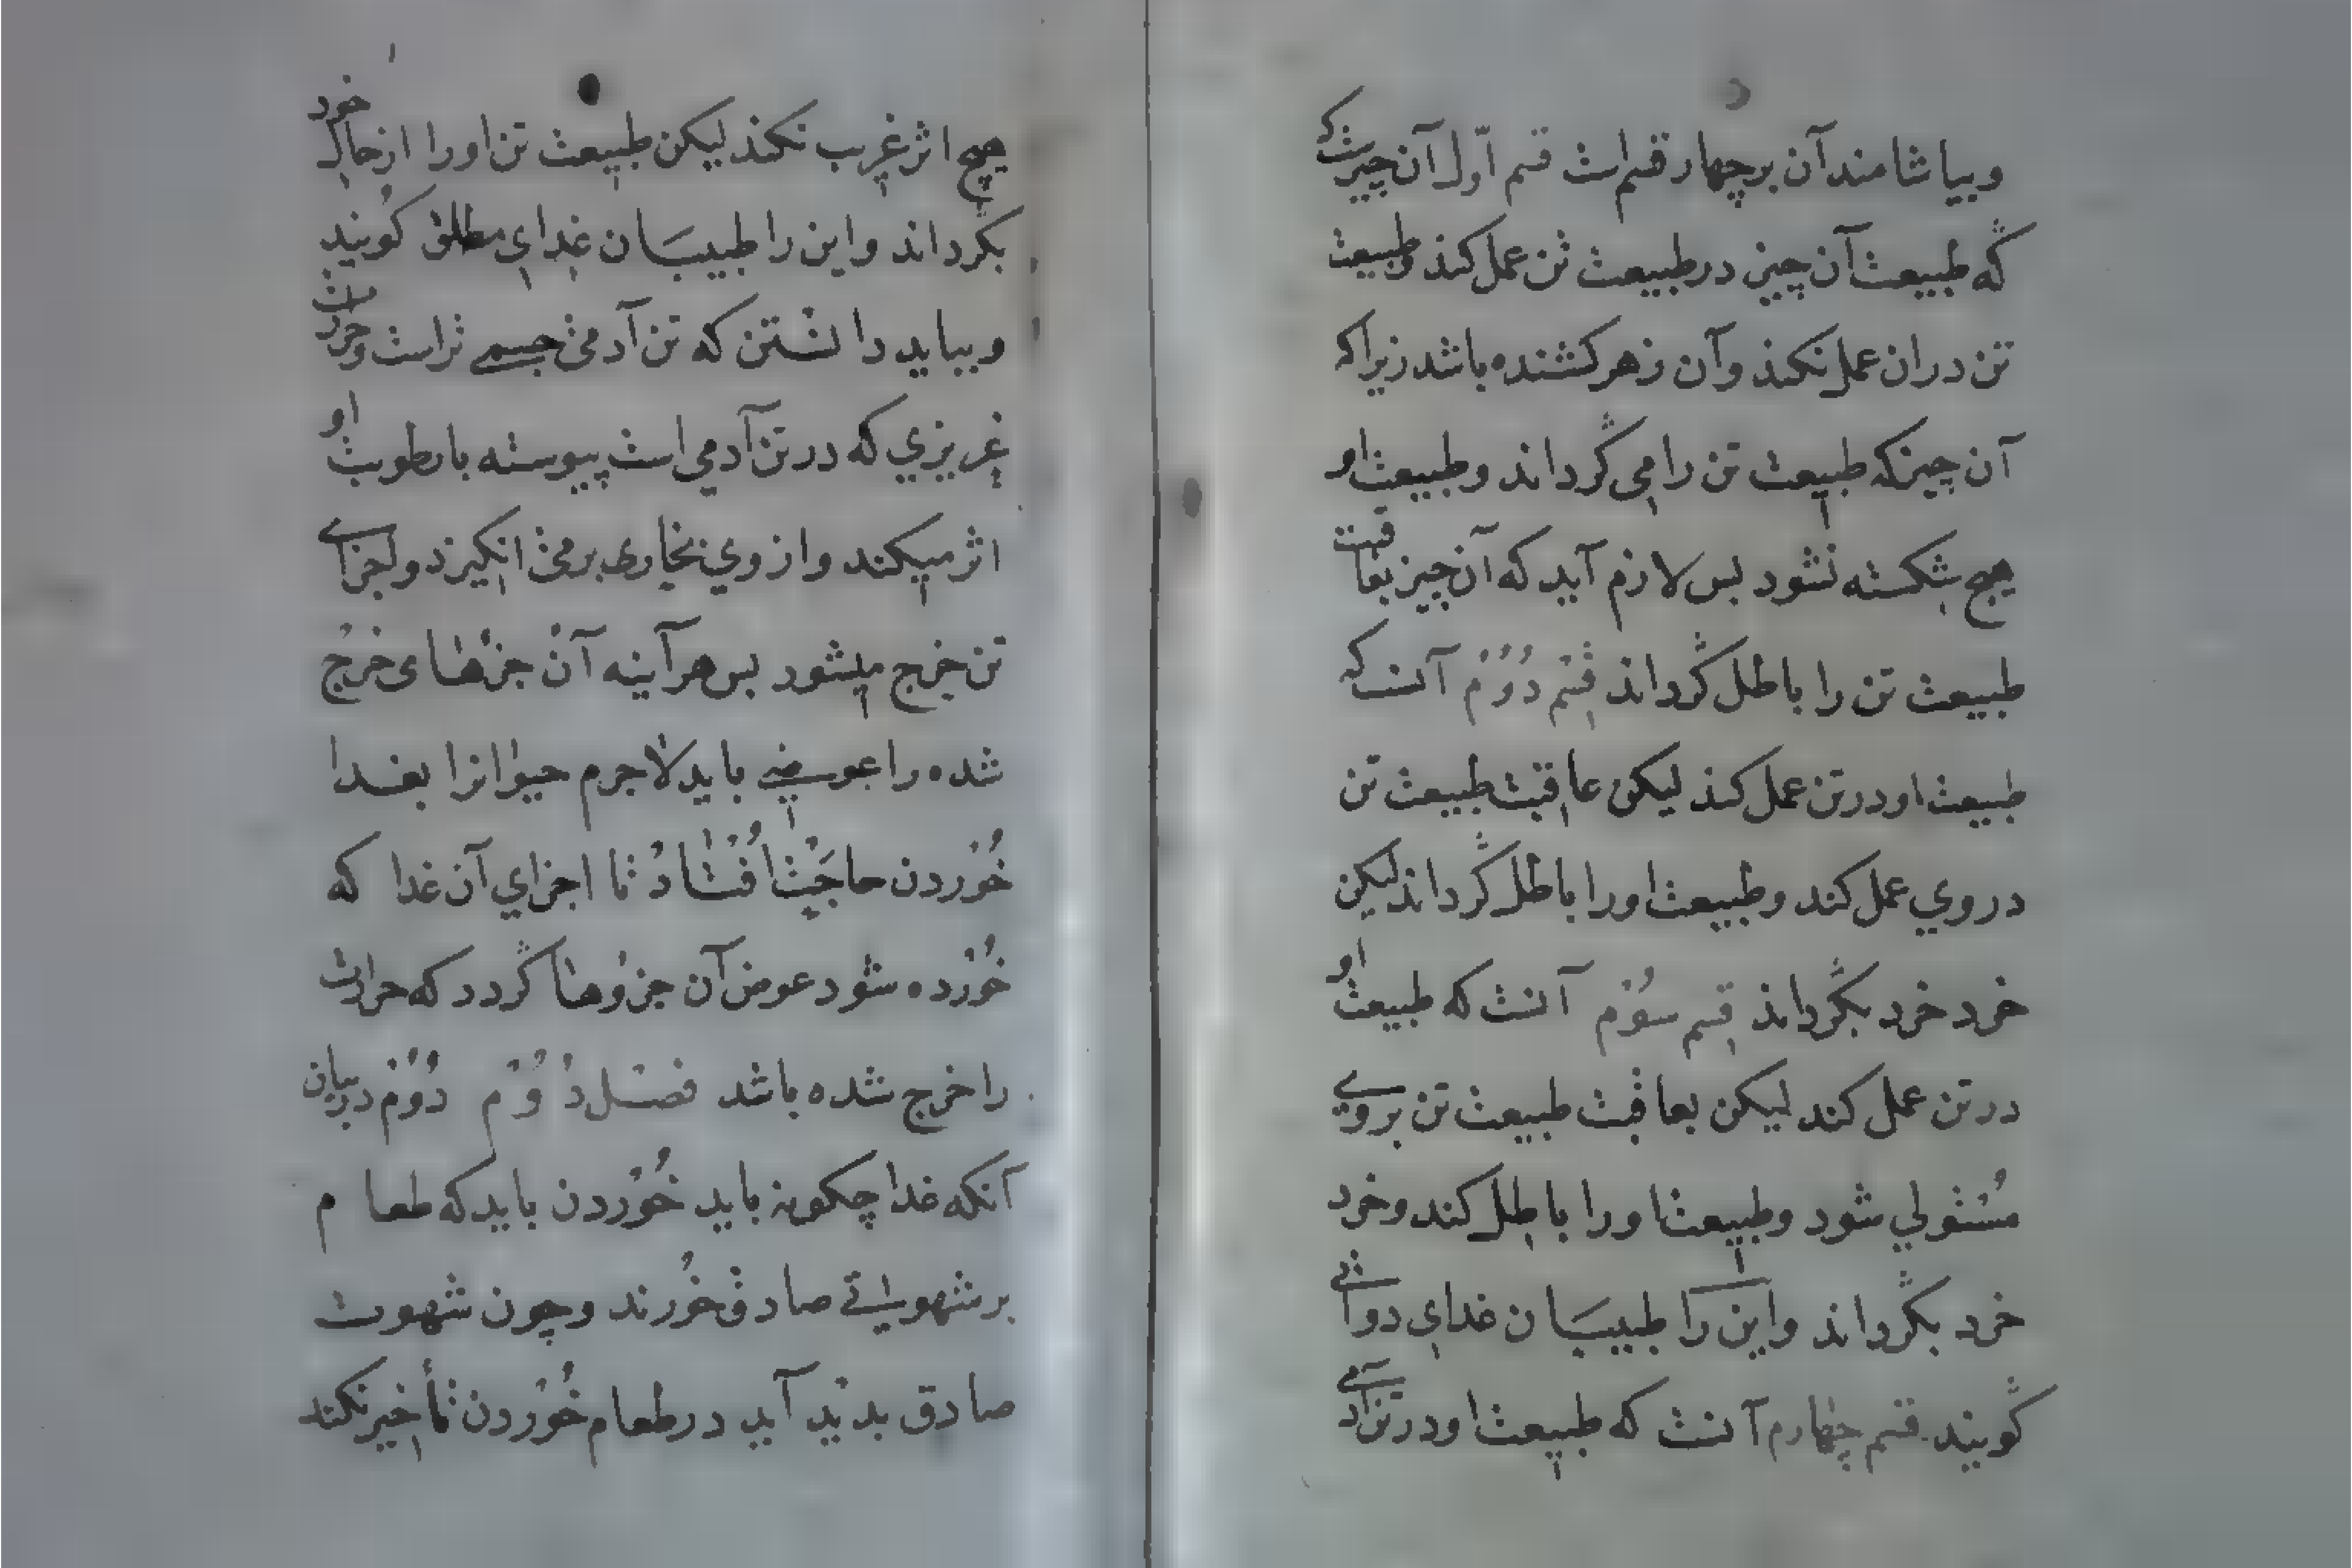 وبیاشامند آن برچهار قسم است قسم اوّل آن چیزیست که
که طبیعت آن چیز در طبیعت تن عمل کند وطبیعت
تن دران عمل نکند وآن زهر کشنده باشد زیرا که
آن چیزکه طبیعت تن را می گرداند وطبیعت او
هیچ شکسته نشود بس لازم آید که آن چیز بعاقبت
طبیعت تن را باطل گرداند قسم دُوُم آنست که
طبیعت او در تن عمل کند لیکن عاقبت طبیعت تن
در وي عمل کند وطبیعت اورا باطل گرداند لیکن
خرد خرد بگرداند قسم سوُم آنست که طبیعت او
در تن عمل کند لیکن بعاقبت طبیعت تن بروي
مُستولي شود وطبیعت اورا باطل کند وخرد
خرد بگرداند واین را طبیبَان غداي دوائي
گویند قسم چهارم آنست که طبیعت او در تن آدمي
هیچ اثر غریب نکند لیکن طبیعت تن اورا از حال خود
بگرداند واین را طبیبَان غداي مطلق گویند
وبباید دانستن که تن آدمی جسمي تراست وحرارت
غریزي که در تن آدمي است پیوسته با رطوبت او
اثر میکند واز وي بخاری برمی انگیزد واجزاي
تن خرج میشود بس هرآینه آن جزهای خرج
شده را عوضي باید لاجرم حیوانرا بغدا
خُوردن حاجَت اُفتاد تا اجزاي آن غدا که
خُورده شود عوض آن جزوُها گردد که حرارت
را خرج شده باشد فصل دُوُم دُوُم در بیان
آنکه غدا چکونه باید خُوردن باید که طعام
بر شهوتي صادق خُورند وچون شهوت
صادق بدید آید در طعام خُوردن تأخیر نکند